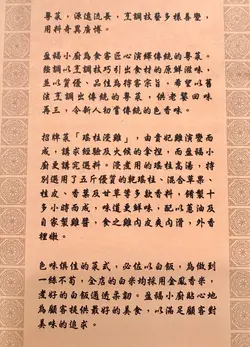 粵菜，源遠流長，烹調技藝多樣善變，
用料奇異廣博。
盈福小廚為食客匠心演繹傳統的粵菜。
推調以烹調技巧引出食材的原鮮滋味，
並以質優、品佳為待客宗旨，希望以舊
法烹調出傳統的粵菜，供老饕回味
再三，令新人初嘗傳統的色香味。
招牌菜「瑤柱浸雞」，由貴妃雞演變而
成，講求經驗及火候的拿捏，而盈福小
廚更講究選料。浸煮用的瑤柱高湯，特
別選用了五斤優質的乾瑤柱、混合草果、
桂皮、香葉及甘草等多款香料，餚製十
多小時而成，味道更鮮味，配以蔥油及
自家製雞醬，食之雞肉皮爽肉滑，外香
裡嫩。
色味俱佳的菜式，必佐以白飯，為做到
一絲不苟，全店的白米均採用金鳳香米，
煮好的白飯通透柔韌。盈福小廚貼心地
為顧客提供最好的美食，以滿足顧客對
美味的追求。